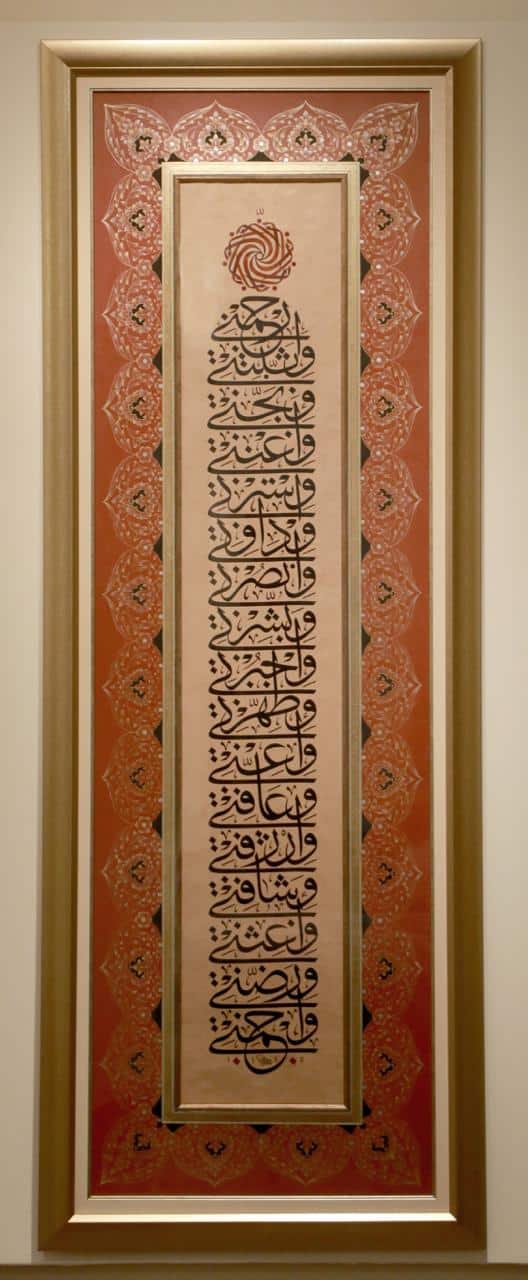 ارحمني
وثبّتني
ونجّني
واغنني
واسترني
وداوني
وانصرني
وبشّرني
واجبرني
وطهّرني
واعنّي
وعافني
وارزقني
وشافني
واغثني
ورضّني
واحمني